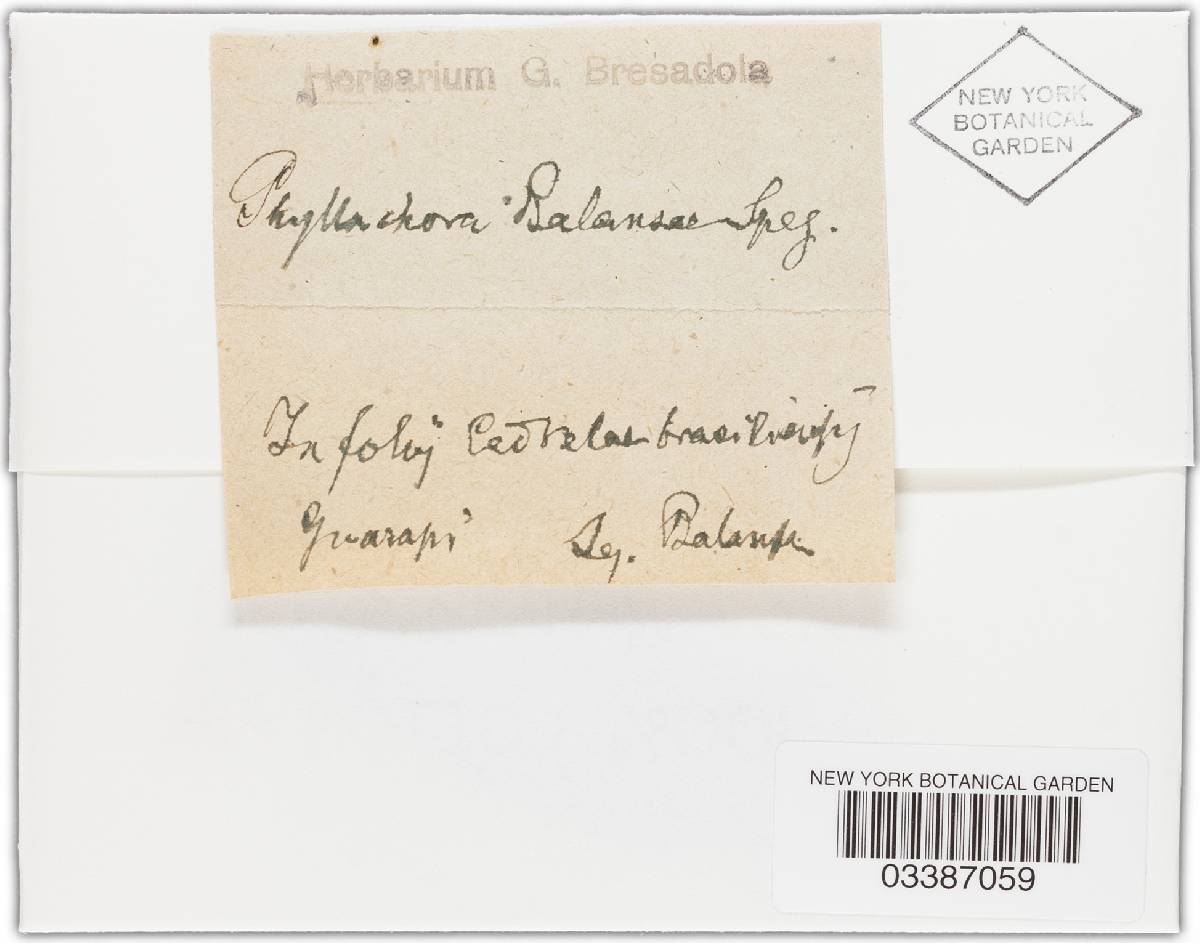 Herbarium G. Bresadola
NEW YORK
BOTANICAL
GARDEN
Phyllachora Balansae Speg.
In folij Cedrelae brasiliensij
Guarapi Leg. Balansa
NEW YORK BOTANICAL GARDEN
03387059